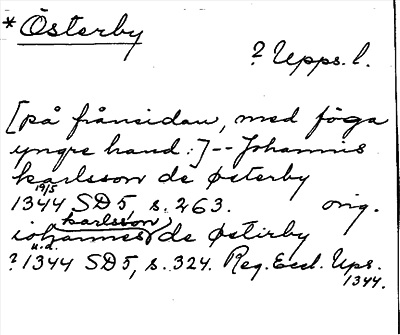 * Österby
? Upps. l.
[på frånsidan, med föga
yngre hand:] -- Johannis
karlsson de østerby
19/5
1344 SD 5, s. 263. orig.
karlsson
iohannes de østirby
u.d.
? 1344 SD 5, s. 324. Reg. Eccl. Ups.
1344.